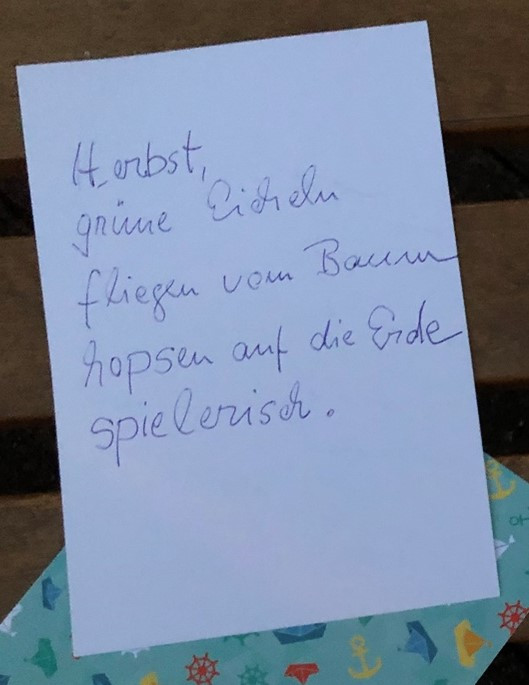 Herbst,
grüne Eicheln
fliegen vom Baum
hopsen auf die Erde
spielerisch.